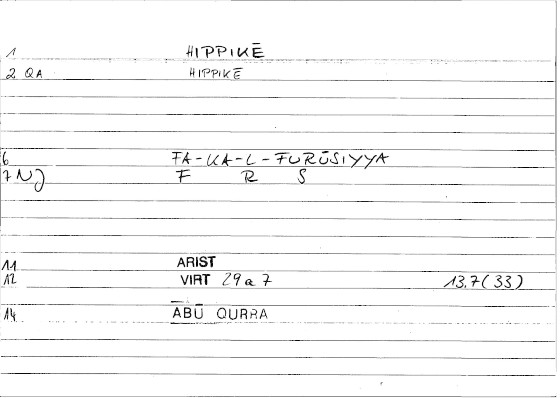 1 HIPPIKĒ
2 QA HIPPIKĒ
6 FA-KA-L-FURŪSIYYA
7 NJ F R S
11 ARIST
12 VIRT 29a7 13.7(33)
14 ABŪ QURRA